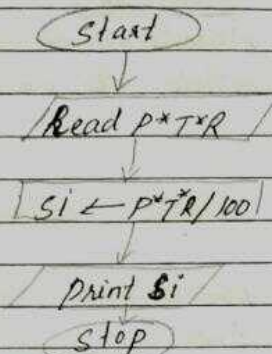 Start
Read P*T*R
Si ← P*T*R/100
Print Si
Stop